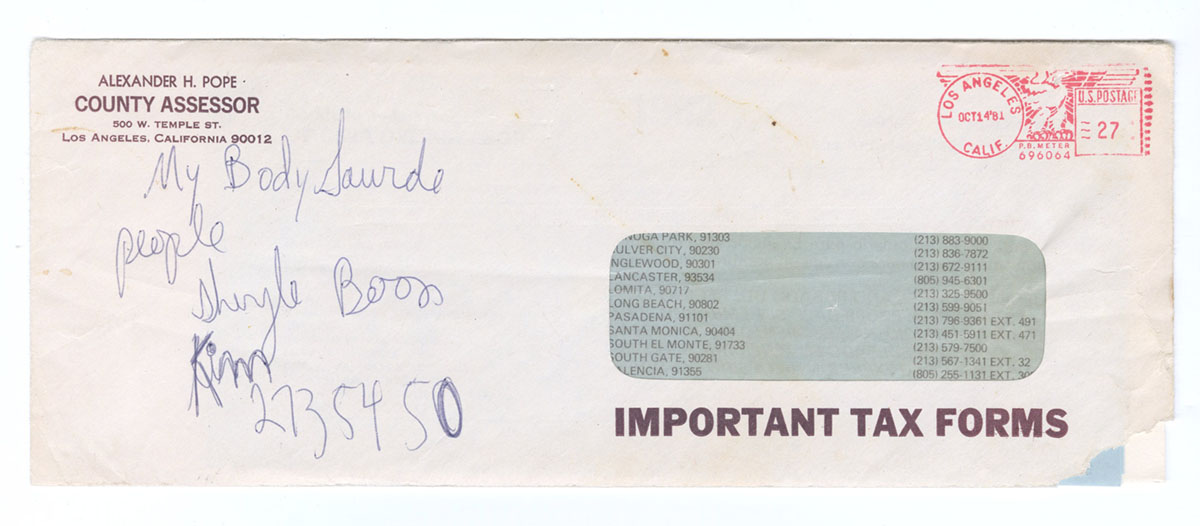 ALEXANDER H. POPE
COUNTY ASSESSOR
500 W. TEMPLE ST.
LOS ANGELES, CALIFORNIA 90012
My Body
people
Kim
2735450
LOS ANGELES
OCT14'81
CALIF.
P.B. METER
696064
U.S. POSTAGE
27
NOGA PARK, 91303 (213) 883-9000
ULVER CITY, 90230 (213) 836-7872
NGLEWOOD, 90301 (213) 672-9111
LANCASTER, 93534 (805) 945-6301
LOMITA, 90717 (213) 325-9500
LONG BEACH, 90802 (213) 599-9051
PASADENA, 91101 (213) 796-9361 EXT. 491
SANTA MONICA, 90404 (213) 451-5911 EXT. 471
SOUTH EL MONTE, 91733 (213) 579-7500
SOUTH GATE, 90281 (213) 567-1341 EXT. 32
ALENCIA, 91355 (805) 255-1131 EXT.
IMPORTANT TAX FORMS